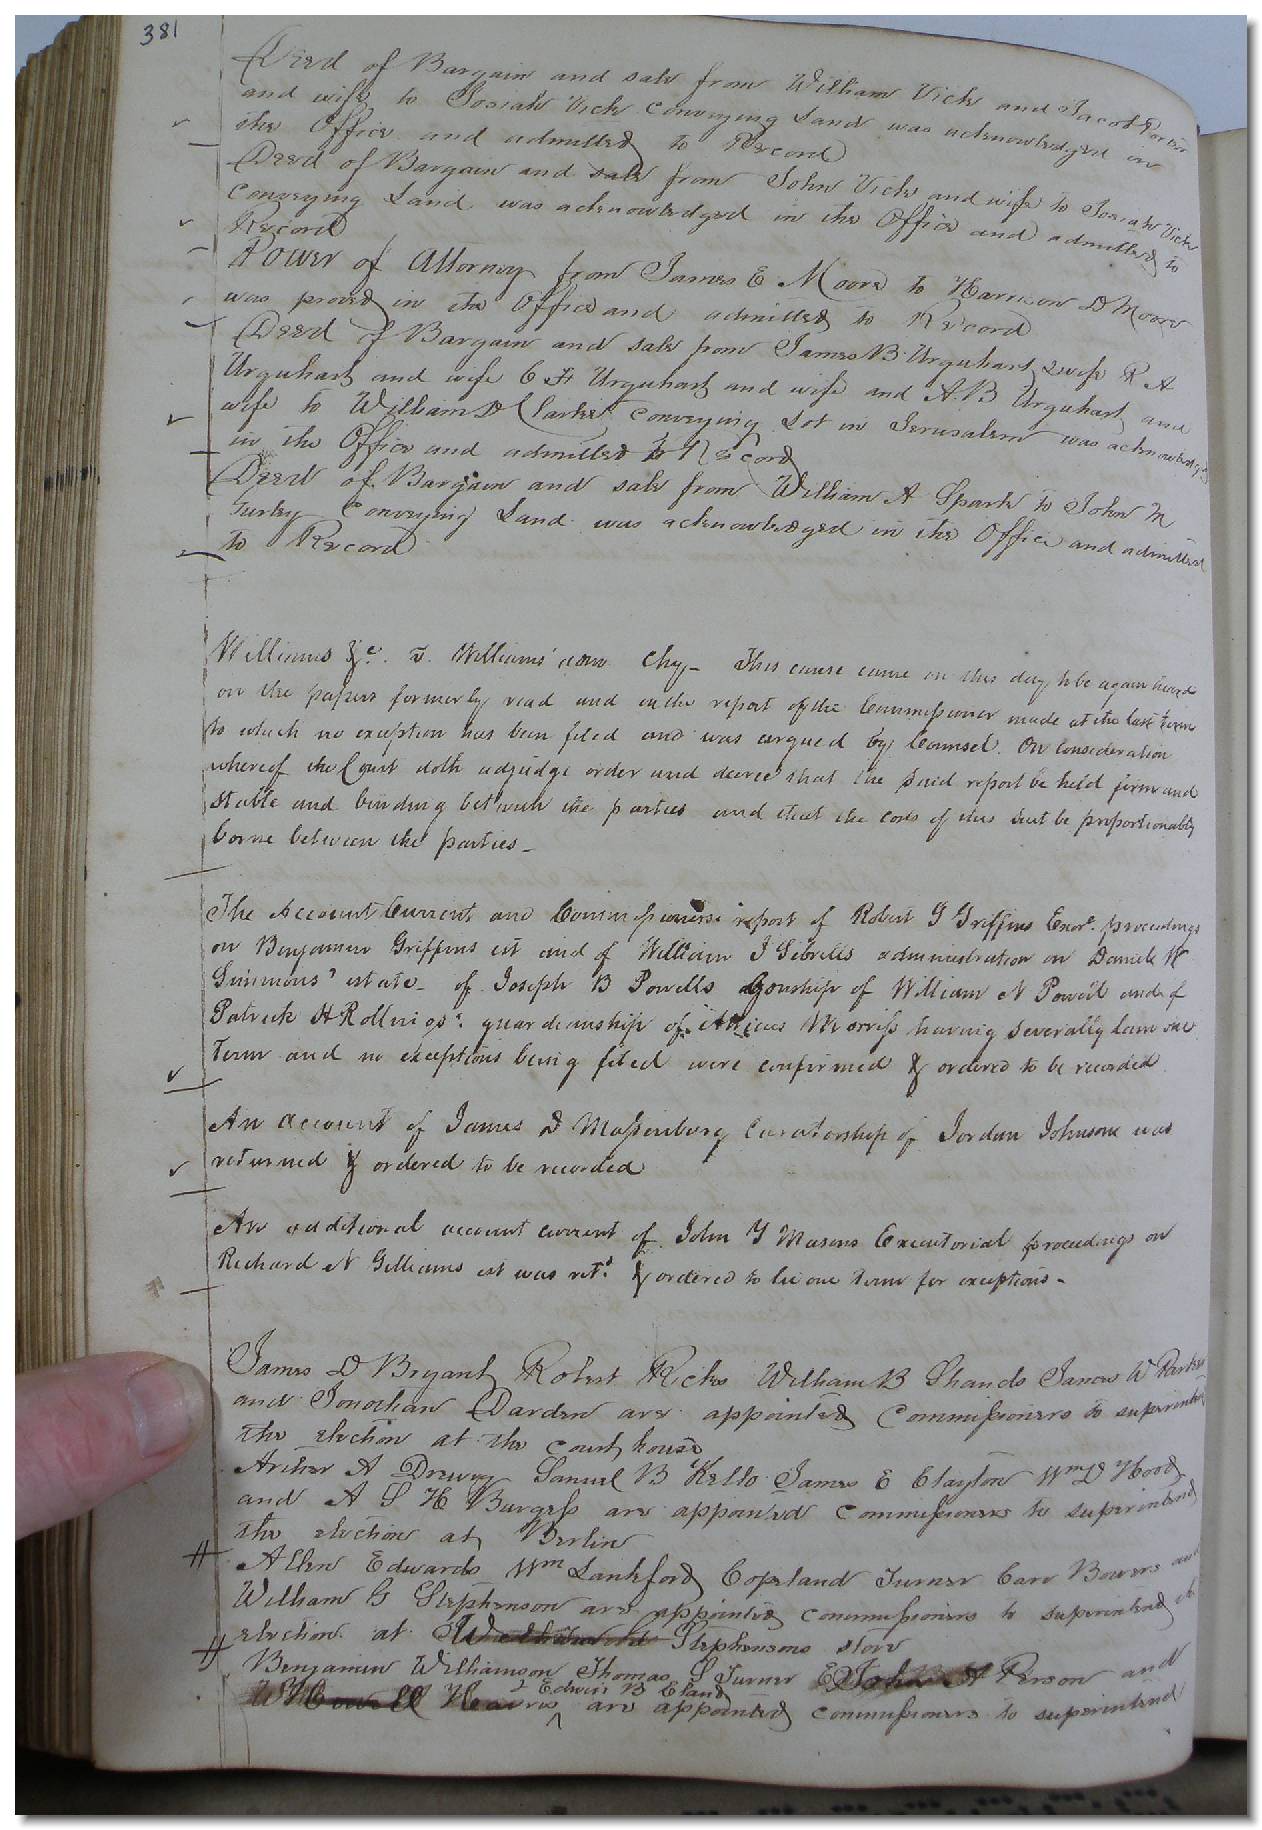 381
Deed of Bargain and sale from William Vick and Jacob
and wife to Josiah Vick Conveying Land was acknowledged in
the Office and admitted to Record
Deed of Bargain and sale from John Vick and wife to Josiah Vick
Conveying Land was acknowledged in the Office and admitted to
Record
Power of Attorney from James E Moore to Harrison D Moore
was proved in the Office and admitted to Record
Deed of Bargain and sale from James B Urquhart & wife R A
Urquhart and wife C F Urquhart and wife and A.B Urquhart and
wife to William D Clarke Conveying Lot in Jerusalem was acknowledged
in the Office and admitted to Record
Deed of Bargain and sale from William A Spark to John M
Gurley Conveying Land was acknowledged in the Office and admitted
to Record
Williams &c. v. Williams' adm Chy- This cause came on this day to be again heard
on the papers formerly read and on the report of the Commissioner made at the last term
to which no exception has been filed and was argued by Counsel. On Consideration
whereof the Court doth adjudge order and decree that the said report be held firm and
stable and binding between the parties and that the costs of this suit be proportionably
borne between the parties_
The Account Current and Commissioners report of Robert G Griffins Exor. proceedings
on Benjamin Griffins est and of William J Sebrells administration on Daniel W
Simmons' estate_ of Joseph B Powells Gonship of William N Powell and of
Patrick H Rollings: guardianship of Atticus Morriss having severally lain one
Term and no exceptions being filed were confirmed & ordered to be recorded
An account of James D Massenburg Curatorship of Jordan Johnson was
returned & ordered to be recorded
An additional account current of John Y Masons Executorial proceedings on
Richard N Gilliams est was retd. & ordered to lie one Term for exceptions-
James D Bryant Robert Ricks William B Shands James W Parker
and Jonathan Darden are appointed Commissioners to superintend
the election at the court house
Archer A Drewry Samuel B Kello James E Clayton Wm D Hood
and A S H Burgess are appointed commissioners to superintend
the election at Berlin
# Allen Edwards Wm Lankford Copeland Turner Carr Bowers and
William G Stephenson are appointed commissioners to superintend the
election at Stephensons store
# Benjamin Williamson Thomas S Turner John H Person and
Edwin B Eland
Harris are appointed commissioners to superintend